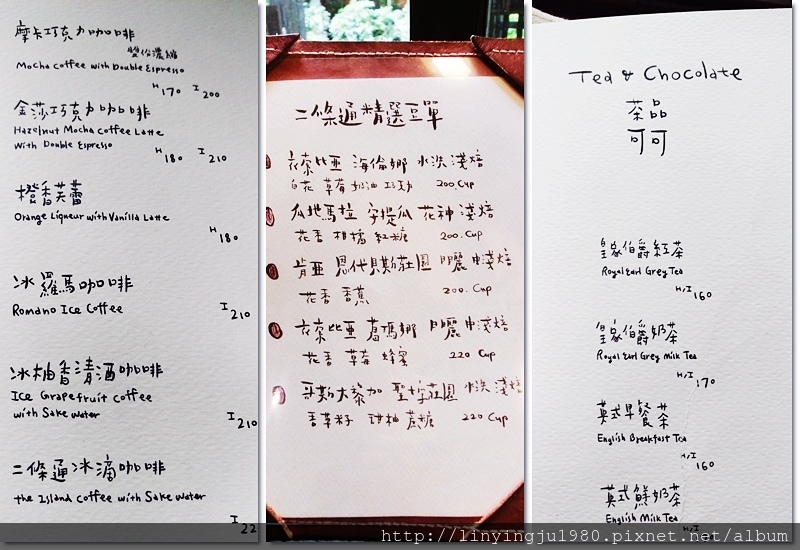 摩卡巧克力咖啡
雙份濃縮
Mocha Coffee with Double Espresso
H 170 I 200
金莎巧克力咖啡
Hazelnut Mocha Coffee Latte
With Double Espresso
H 180 I 210
橙香芙蕾
Orange Liqueur with Vanilla Latte
H 180
冰羅馬咖啡
Romano Ice Coffee
I 210
冰柚香清酒咖啡
Ice Grapefruit Coffee
with Sake Water
I 210
二條通冰滴咖啡
the Island Coffee with Sake Water
I 22
二條通精選豆單
衣索比亞 海倫娜 水洗淺焙
白花 草莓奶油 巧克力 200.Cup
瓜地馬拉 宇提瓜 花神 淺焙
花香 柑橘 紅糖 200.Cup
肯亞 恩代貝斯莊園 日曬 中淺焙
花香 香蕉 200.Cup
衣索比亞 葛瑪娜 日曬 中淺焙
花香 草莓 蜂蜜 220 Cup
哥斯大黎加 聖塔莊園 水洗 淺焙
香草籽 甜柚 蔗糖 220 Cup
Tea & Chocolate
茶品
可可
皇家伯爵紅茶
Royal Earl Grey Tea
H/I 160
皇家伯爵奶茶
Royal Earl Grey Milk Tea
H/I 170
英式早餐茶
English Breakfast Tea
H/I 160
英式鮮奶茶
English Milk Tea
H/I
http://linyingju1980.pixnet.net/album